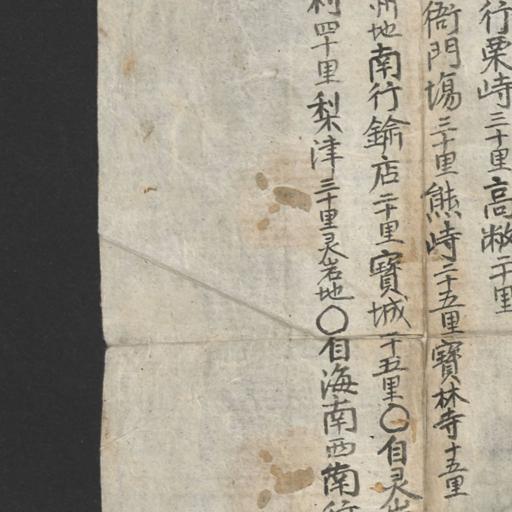 行栗峙三十里高敝二十里
衙門場三十里熊峙二十五里寶林寺十五里
州地南行鍮店二十里寶城二十五里〇自灵岩
四十里梨津三十里灵岩地〇自海南西南行